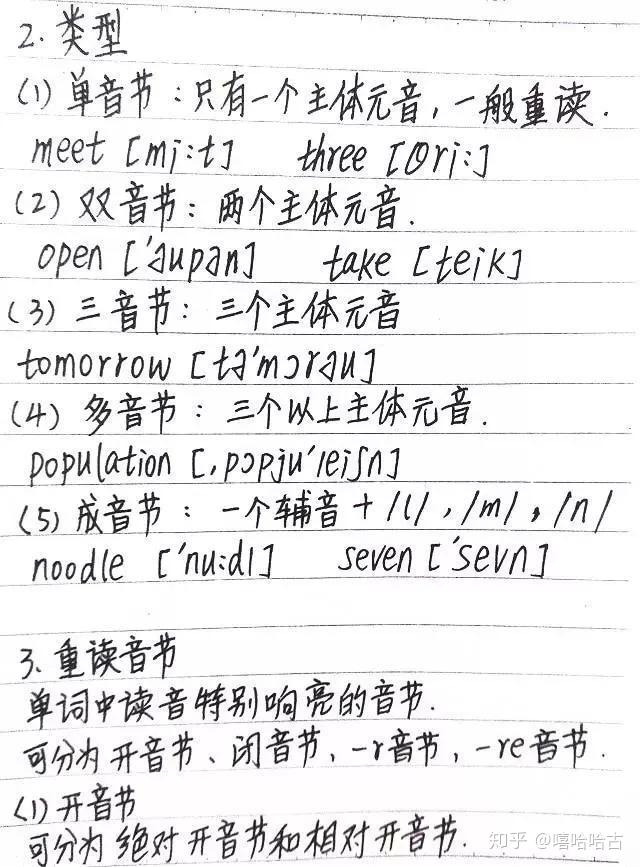 2. 类型
(1) 单音节：只有一个主体元音，一般重读.
meet [mi:t] three [θri:]
(2) 双音节：两个主体元音.
open ['əupən] take [teik]
(3) 三音节：三个主体元音
tomorrow [tə'mɔrəu]
(4) 多音节：三个以上主体元音.
population [,pɔpju'leiʃn]
(5) 成音节：一个辅音 + /l/，/m/，/n/
noodle ['nu:dl] seven ['sevn]
3、重读音节
单词中读音特别响亮的音节.
可分为开音节、闭音节，-r音节，-re音节.
(1) 开音节
可分为绝对开音节和相对开音节.
知乎 @嘻哈哈古